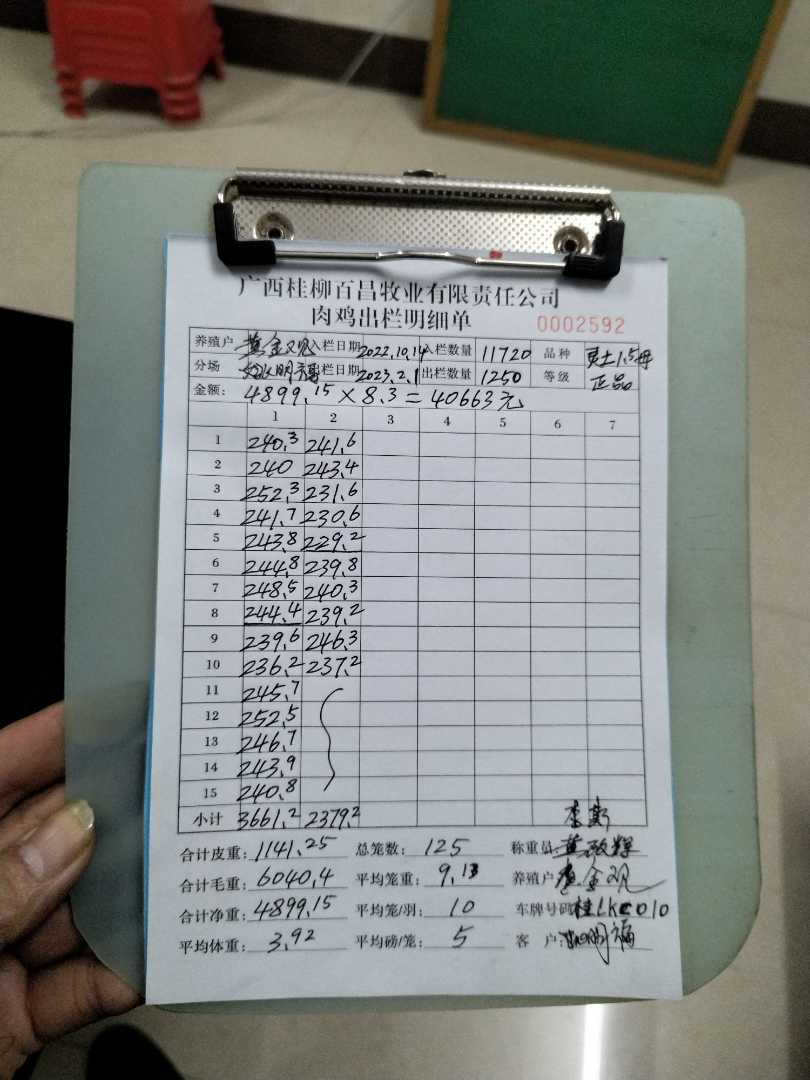 广西桂柳百昌牧业有限责任公司
肉鸡出栏明细单 0002592
养殖户 黄金观 入栏日期 2022.10.14 入栏数量 11720 品种
分场 明福 出栏日期 2023.2.1 出栏数量 1250 等级 正品
金额: 4899.15×8.3=40663元
1 2 3 4 5 6 7
1 240.3 241.6
2 240 243.4
3 252.3 231.6
4 241.7 230.6
5 243.8 229.2
6 244.8 239.8
7 248.5 240.3
8 244.4 239.2
9 239.6 246.3
10 236.2 237.2
11 245.7
12 252.5
13 246.7
14 243.9
15 240.8
小计 3661.2 2379.2
合计皮重: 1141.25 总笼数: 125 称重员
合计毛重: 6040.4 平均笼重: 9.13 养殖户 黄金观
合计净重: 4899.15 平均笼/羽: 10 车牌号码
平均体重: 3.92 平均磅/笼: 5 客 户: 明福